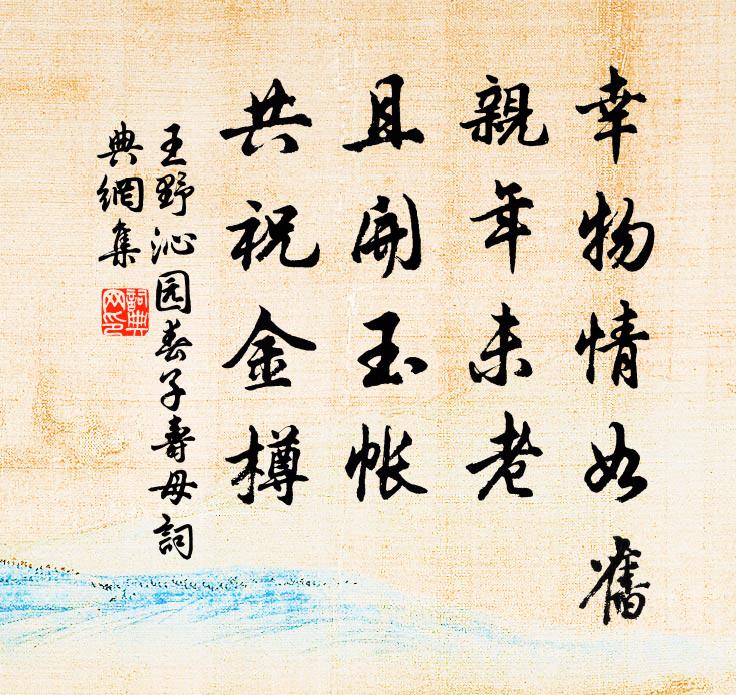 幸物情如舊
親年未老
且開玉帳
共祝金樽
王野沁园春子壽母詞
典網集
詞典网印